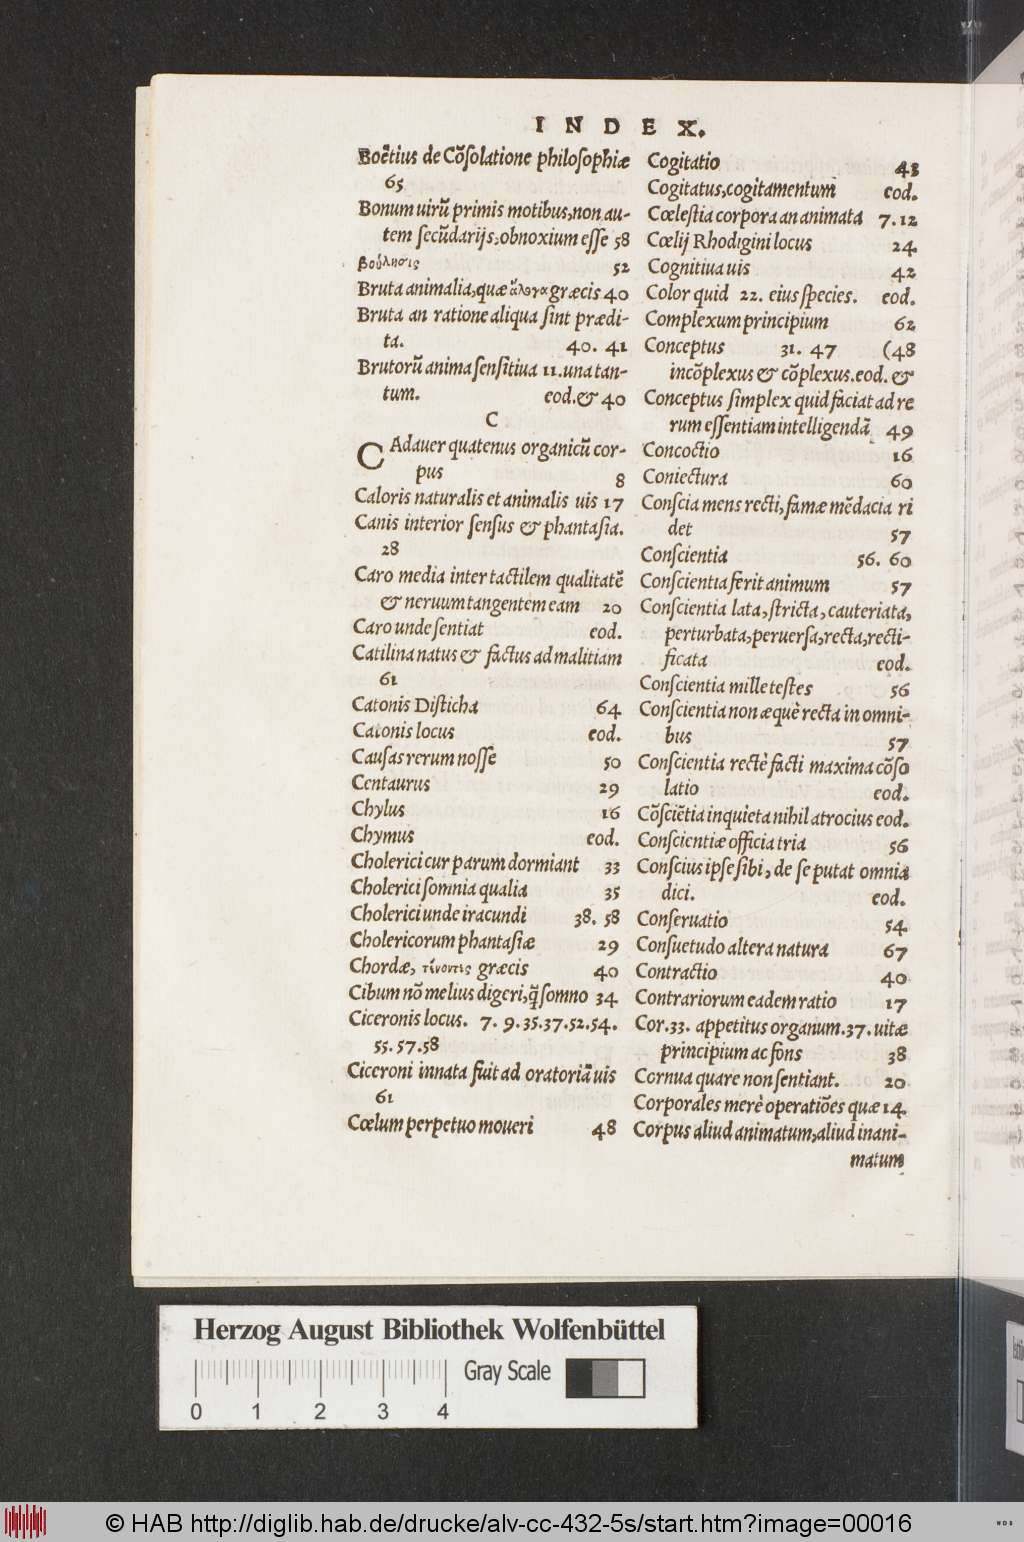 INDEX.
Boëtius de Cōsolatione philosophiæ
65
Bonum uirū primis motibus, non au-
tem secūdarijs, obnoxium esse 58
βούλησις 52
Bruta animalia, quæ ἄλογα græcis 40
Bruta an ratione aliqua sint prædi-
ta. 40. 41
Brutorū anima sensitiua 11. una tan-
tum. eod. & 40
C
CAdauer quatenus organicū cor-
pus 8
Caloris naturalis et animalis uis 17
Canis interior sensus & phantasia.
28
Caro media inter tactilem qualitatē
& neruum tangentem eam 20
Caro unde sentiat eod.
Catilina natus & factus ad malitiam
61
Catonis Disticha 64
Catonis locus eod.
Causas rerum nosse 50
Centaurus 29
Chylus 16
Chymus eod.
Cholerici cur parum dormiant 33
Cholerici somnia qualia 35
Cholerici unde iracundi 38. 58
Cholericorum phantasiæ 29
Chordæ, τένοντες græcis 40
Cibum nō melius digeri, q̃ somno 34
Ciceronis locus. 7. 9. 35. 37. 52. 54.
55. 57. 58
Ciceroni innata fuit ad oratoriā uis
61
Cœlum perpetuo moueri 48
Cogitatio 43
Cogitatus, cogitamentum eod.
Cœlestia corpora an animata 7. 12
Cœlij Rhodigini locus 24
Cognitiua uis 42
Color quid 22. eius species. eod.
Complexum principium 62
Conceptus 31. 47 (48
incōplexus & cōplexus. eod. &
Conceptus simplex quid faciat ad re
rum essentiam intelligendā 49
Concoctio 16
Coniectura 60
Conscia mens recti, famæ mēdacia ri
det 57
Conscientia 56. 60
Conscientia ferit animum 57
Conscientia lata, stricta, cauteriata,
perturbata, peruersa, recta, recti-
ficata eod.
Conscientia mille testes 56
Conscientia non æquè recta in omni-
bus 57
Conscientia rectè facti maxima cōso
latio eod.
Cōsciētia inquieta nihil atrocius eod.
Conscientiæ officia tria 56
Conscius ipse sibi, de se putat omnia
dici. eod.
Conseruatio 54
Consuetudo altera natura 67
Contractio 40
Contrariorum eadem ratio 17
Cor. 33. appetitus organum. 37. uitæ
principium ac fons 38
Cornua quare non sentiant. 20
Corporales merè operatiōes quæ 14
Corpus aliud animatum, aliud inani-
matum
Herzog August Bibliothek Wolfenbüttel
Gray Scale
0 1 2 3 4
© HAB http://diglib.hab.de/drucke/alv-cc-432-5s/start.htm?image=00016